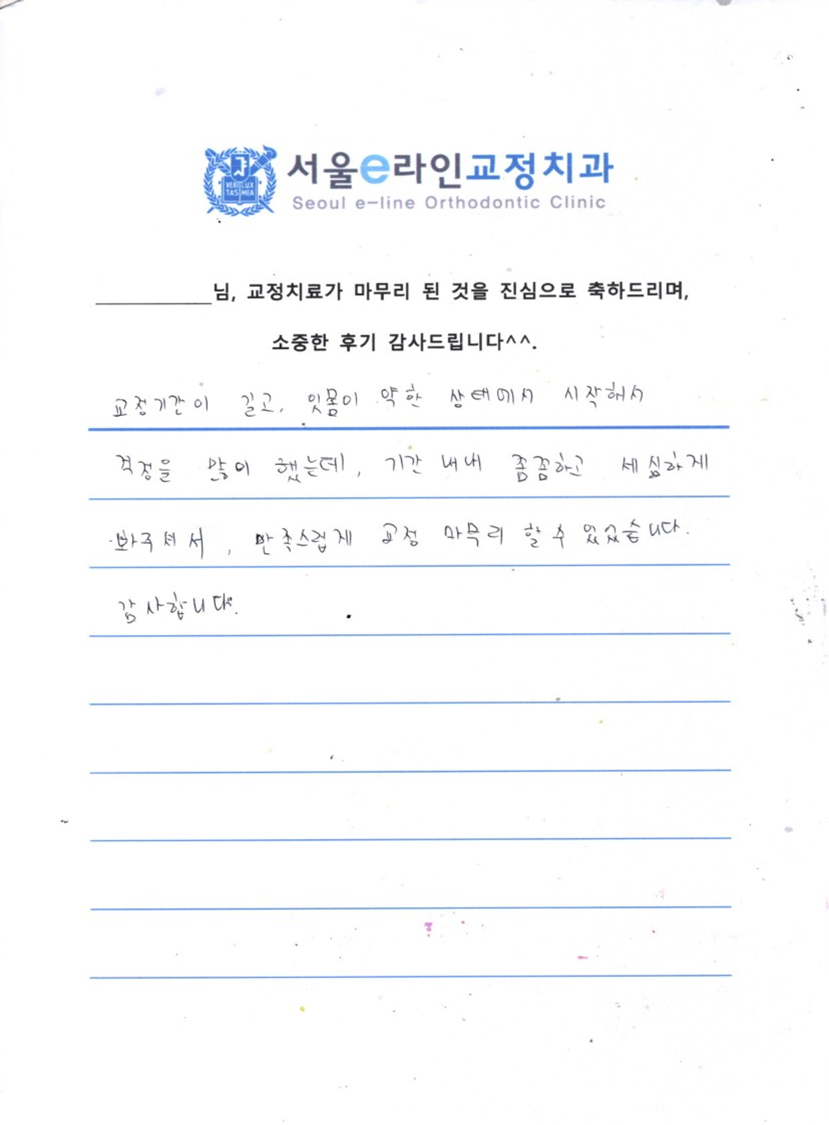 서울e라인교정치과
Seoul e-line Orthodontic Clinic
VERI LUX
TAS MEA
__________님, 교정치료가 마무리 된 것을 진심으로 축하드리며,
소중한 후기 감사드립니다^^.
교정기간이 길고, 잇몸이 약한 상태에서 시작해서
걱정을 많이 했는데, 기간 내내 꼼꼼하고 세심하게
봐주셔서, 만족스럽게 교정 마무리 할 수 있었습니다.
감사합니다.